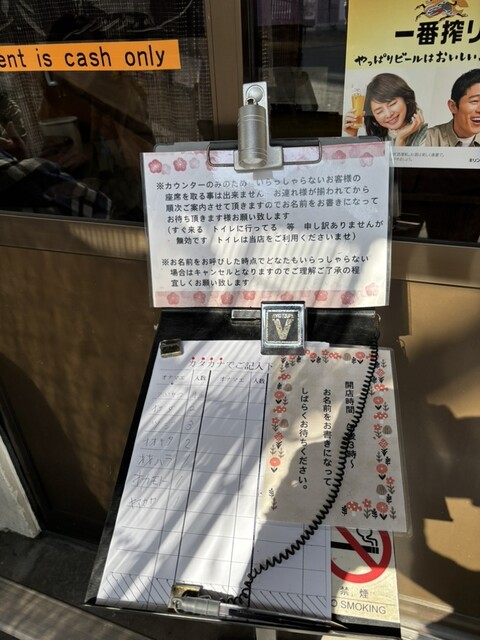 ent is cash only
一番搾り
やっぱりビールはおいしい
※カウンターのみのため いらっしゃらないお客様の
座席を取る事は出来ません お連れ様が揃われてから
順次ご案内させて頂きますのでお名前をお書きになって
お待ち頂きます様お願い致します
(すぐ来る トイレに行ってる 等 申し訳ありませんが
無効です トイレは当店をご利用くださいませ)
※お名前をお呼びした時点でどなたもいらっしゃらない
場合はキャンセルとなりますのでご理解ご了承の程
宜しくお願い致します
V
カタカナでご記入下
人数
人数
開店時間
3時～
お名前をお書きになって
しばらくお待ちください。
禁煙
O SMOKING